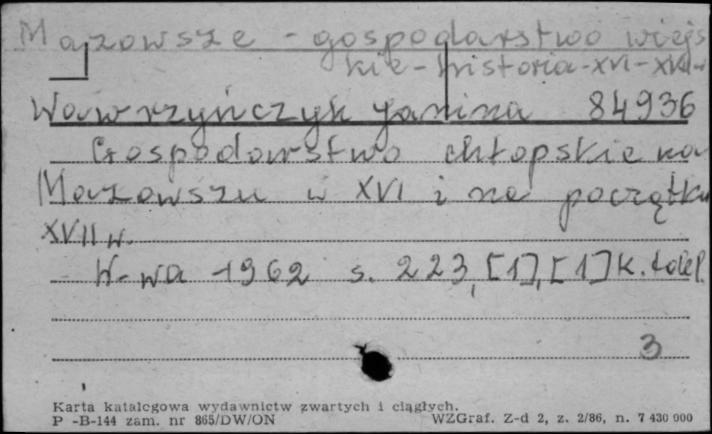 Mazowsze - gospodarstwo wiejs
kie - historia - XVI - XVII w
Wawrzyńczyk Janina 84936
Gospodarstwo chłopskie na
Mazowszu w XVI i na początku
XVII w.
W-wa 1962 s. 223, [1], [1] k. tabl.
3
Karta katalogowa wydawnictw zwartych i ciągłych.
P -B-144 zam. nr 865/DW/ON WZGraf. Z-d 2, z. 2/86, n. 7 430 000